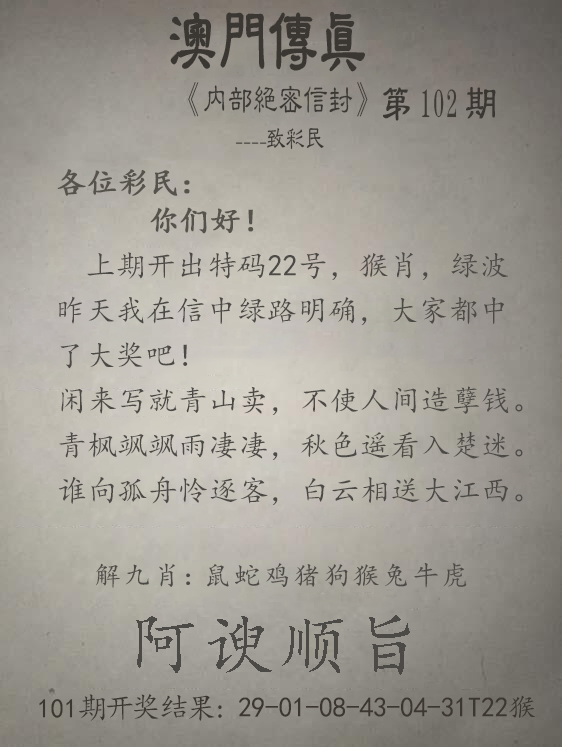 澳門傳眞
《内部絕密信封》第102期
----致彩民
各位彩民：
你们好！
上期开出特码22号，猴肖，绿波
昨天我在信中绿路明确，大家都中
了大奖吧！
闲来写就青山卖，不使人间造孽钱。
青枫飒飒雨凄凄，秋色遥看入楚迷。
谁向孤舟怜逐客，白云相送大江西。
解九肖：鼠蛇鸡猪狗猴兔牛虎
阿谀顺旨
101期开奖结果：29-01-08-43-04-31T22猴